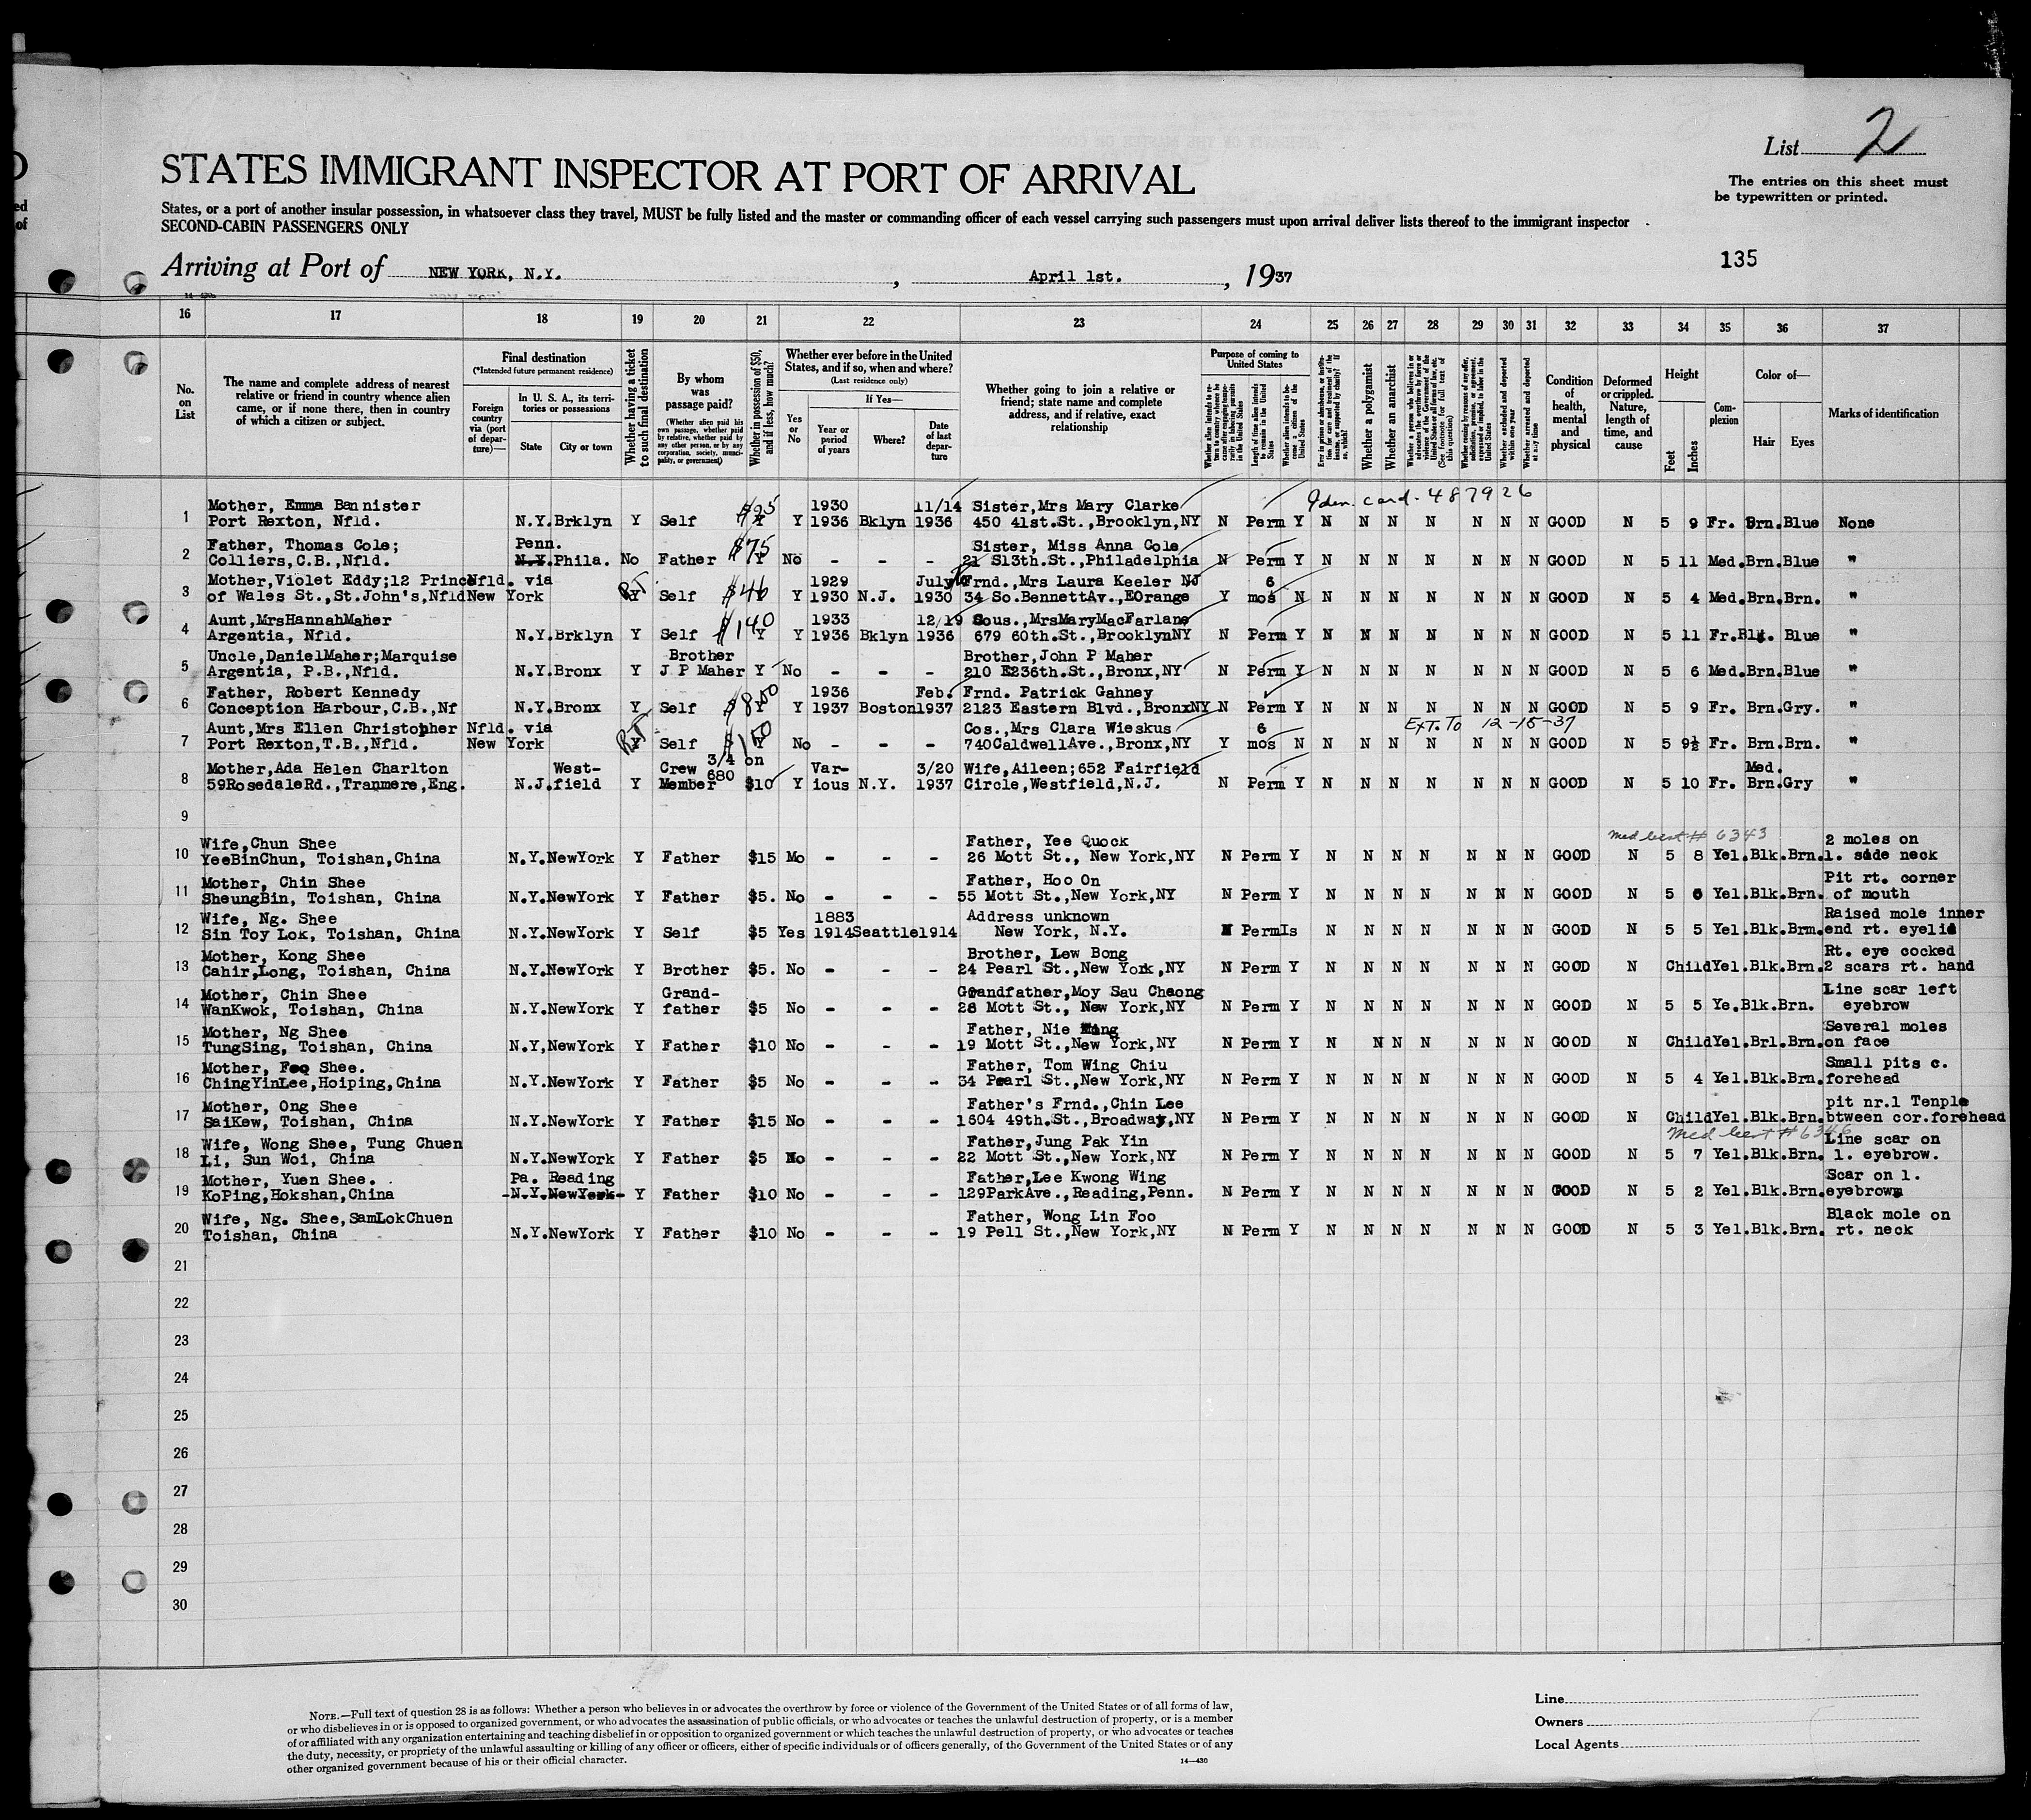 D
ed
of
List 2
STATES IMMIGRANT INSPECTOR AT PORT OF ARRIVAL
The entries on this sheet must
be typewritten or printed.
States, or a port of another insular possession, in whatsoever class they travel, MUST be fully listed and the master or commanding officer of each vessel carrying such passengers must upon arrival deliver lists thereof to the immigrant inspector
SECOND-CABIN PASSENGERS ONLY
135
Arriving at Port of NEW YORK, N.Y. , April 1st. , 1937
16 17 18 19 20 21 22 23 24 25 26 27 28 29 30 31 32 33 34 35 36 37
No. on List
The name and complete address of nearest relative or friend in country whence alien came, or if none there, then in country of which a citizen or subject.
Final destination
(*Intended future permanent residence)
Foreign country via (port of departure)—
In U. S. A., its territories or possessions
State
City or town
Whether having a ticket to such final destination
By whom was passage paid?
(Whether alien paid his own passage, whether paid by relative, whether paid by any other person, or by any corporation, society, municipality, or government)
Whether in possession of $50, and if less, how much?
Whether ever before in the United States, and if so, when and where?
(Last residence only)
Yes or No
If Yes—
Year or period of years
Where?
Date of last departure
Whether going to join a relative or friend; state name and complete address, and if relative, exact relationship
Purpose of coming to United States
Length of time alien intends to remain in the United States
Whether alien intends to become a citizen of the United States
Whether a polygamist
Whether an anarchist
Whether excluded and deported within one year
Whether arrested and deported at any time
Condition of health, mental and physical
Deformed or crippled. Nature, length of time, and cause
Height
Feet
Inches
Complexion
Color of—
Hair
Eyes
Marks of identification
Iden. card - 487926
Mother, Emma Bannister 1930 11/14 Sister,Mrs Mary Clarke
1 Port Rexton, Nfld. N.Y. Brklyn Y Self $95 Y Y 1936 Bklyn 1936 450 41st.St.,Brooklyn,NY N Perm Y N N N N N N N GOOD N 5 9 Fr. Brn.Blue None
Father, Thomas Cole; Penn. Sister, Miss Anna Cole
2 Colliers,C.B.,Nfld. N.Y. Phila. No Father $75 Y No - - - 21 S13th.St.,Philadelphia N Perm Y N N N N N N N GOOD N 5 11 Med.Brn.Blue "
Mother,Violet Eddy;12 Prince Nfld. via 1929 July Frnd.,Mrs Laura Keeler NJ 6
3 of Wales St.,St.John's,Nfld New York RT Y Self $46 Y Y 1930 N.J. 1930 34 So.BennettAv.,EOrange Y mos N N N N N N N N GOOD N 5 4 Med.Brn.Brn. "
Aunt,MrsHannahMaher 1933 12/19 Cous.,MrsMaryMacFarlane
4 Argentia, Nfld. N.Y. Brklyn Y Self $140 Y Y 1936 Bklyn 1936 679 60th.St.,BrooklynNY N Perm Y N N N N N N N GOOD N 5 11 Fr.Blk. Blue "
Uncle,DanielMaher;Marquise Brother Brother,John P Maher
5 Argentia, P.B.,Nfld. N.Y. Bronx Y J P Maher Y No - - - 210 E236th.St.,Bronx,NY N Perm Y N N N N N N N GOOD N 5 6 Med.Brn.Blue "
Father, Robert Kennedy 1936 Feb. Frnd. Patrick Gahney
6 Conception Harbour,C.B.,Nf N.Y. Bronx Y Self $800 Y Y 1937 Boston 1937 2123 Eastern Blvd.,BronxNY N Perm Y N N N N N N N GOOD N 5 9 Fr. Brn.Gry. "
Aunt,Mrs Ellen Christopher Nfld. via Cos.,Mrs Clara Wieskus 6 EXT. TO 12-15-37
7 Port Rexton,T.B.,Nfld. New York RT Y Self $150 Y No - - - 740CaldwellAve.,Bronx,NY Y mos N N N N N N N N GOOD N 5 9½ Fr. Brn.Brn. "
Mother,Ada Helen Charlton West- Crew 3/4 on 680 Var- 3/20 Wife,Aileen;652 Fairfield Med.
8 59RosedaleRd.,Tranmere,Eng. N.J. field Y Member $10 Y ious N.Y. 1937 Circle,Westfield,N.J. N Perm Y N N N N N N N GOOD N 5 10 Fr. Brn.Gry "
9
Med cert # 6343
Wife,Chun Shee Father, Yee Quock 2 moles on
10 YeeBinChun, Toishan,China N.Y.NewYork Y Father $15 Mo - - - 26 Mott St., New York,NY N Perm Y N N N N N N N GOOD N 5 8 Yel.Blk.Brn. l. side neck
Mother, Chin Shee Father, Hoo On Pit rt. corner
11 SheungBin, Toishan, China N.Y.NewYork Y Father $5. No - - - 55 Mott St.,New York,NY N Perm Y N N N N N N N GOOD N 5 0 Yel.Blk.Brn. of mouth
Wife, Ng. Shee 1883 Address unknown Raised mole inner
12 Sin Toy Lok, Toishan, China N.Y.NewYork Y Self $5 Yes 1914 Seattle 1914 New York, N.Y. N PermIs N N N N N N N GOOD N 5 5 Yel.Blk.Brm. end rt. eyelid
Mother, Kong Shee Brother, Lew Bong Rt. eye cocked
13 Cahir,Long, Toishan, China N.Y.NewYork Y Brother $5. No - - - 24 Pearl St.,New York,NY N Perm Y N N N N N N N GOOD N Child Yel.Blk.Brn. 2 scars rt. hand
Mother, Chin Shee Grand- Grandfather,Moy Sau Cheong Line scar left
14 WanKwok, Toishan, China N.Y.NewYork Y father $5 No - - - 28 Mott St., New York,NY N Perm Y N N N N N N N GOOD N 5 5 Ye.Blk.Brn. eyebrow
Mother, Ng Shee Father, Nie Ming Several moles
15 TungSing, Toishan, China N.Y,NewYork Y Father $10 No - - - 19 Mott St.,New York,NY N Perm Y N N N N N N N GOOD N Child Yel.Brl.Brn. on face
Mother, Foo Shee. Father, Tom Wing Chiu Small pits c.
16 ChingYinLee,Hoiping,China N.Y.NewYork Y Father $5 No - - - 34 Pearl St.,New York,NY N Perm Y N N N N N N N GOOD N 5 4 Yel.Blk.Brn. forehead
Mother, Ong Shee Father's Frnd.,Chin Lee pit nr.l Tenple
17 SaiKew, Toishan, China N.Y.NewYork Y Father $15 No - - - 1604 49th.St.,Broadway,NY N Perm Y N N N N N N N GOOD N Child Yel.Blk.Brn. btween cor.forehead
Med cert # 6346
Wife, Wong Shee, Tung Chuen Father,Jung Pak Yin Line scar on
18 Li, Sun Woi, China N.Y.NewYork Y Father $5 No - - - 22 Mott St.,New York,NY N Perm Y N N N N N N N GOOD N 5 7 Yel.Blk.Brn. l. eyebrow.
Mother, Yuen Shee. Pa. Reading Father,Lee Kwong Wing Scar on l.
19 KoPing,Hokshan,China N.Y.NewYork Y Father $10 No - - - 129ParkAve.,Reading,Penn. N Perm Y N N N N N N N GOOD N 5 2 Yel.Blk.Brn. eyebrows
Wife, Ng. Shee,SamLokChuen Father, Wong Lin Foo Black mole on
20 Toishan, China N.Y.NewYork Y Father $10 No - - - 19 Pell St.,New York,NY N Perm Y N N N N N N N GOOD N 5 3 Yel.Blk.Brn. rt. neck
21
22
23
24
25
26
27
28
29
30
NOTE.—Full text of question 28 is as follows: Whether a person who believes in or advocates the overthrow by force or violence of the Government of the United States or of all forms of law,
or who disbelieves in or is opposed to organized government, or who advocates the assassination of public officials, or who advocates or teaches the unlawful destruction of property, or is a member
of or affiliated with any organization entertaining and teaching disbelief in or opposition to organized government or which teaches the unlawful destruction of property, or who advocates or teaches
the duty, necessity, or propriety of the unlawful assaulting or killing of any officer or officers, either of specific individuals or of officers generally, of the Government of the United States or of any
other organized government because of his or their official character.
14—430
Line
Owners
Local Agents